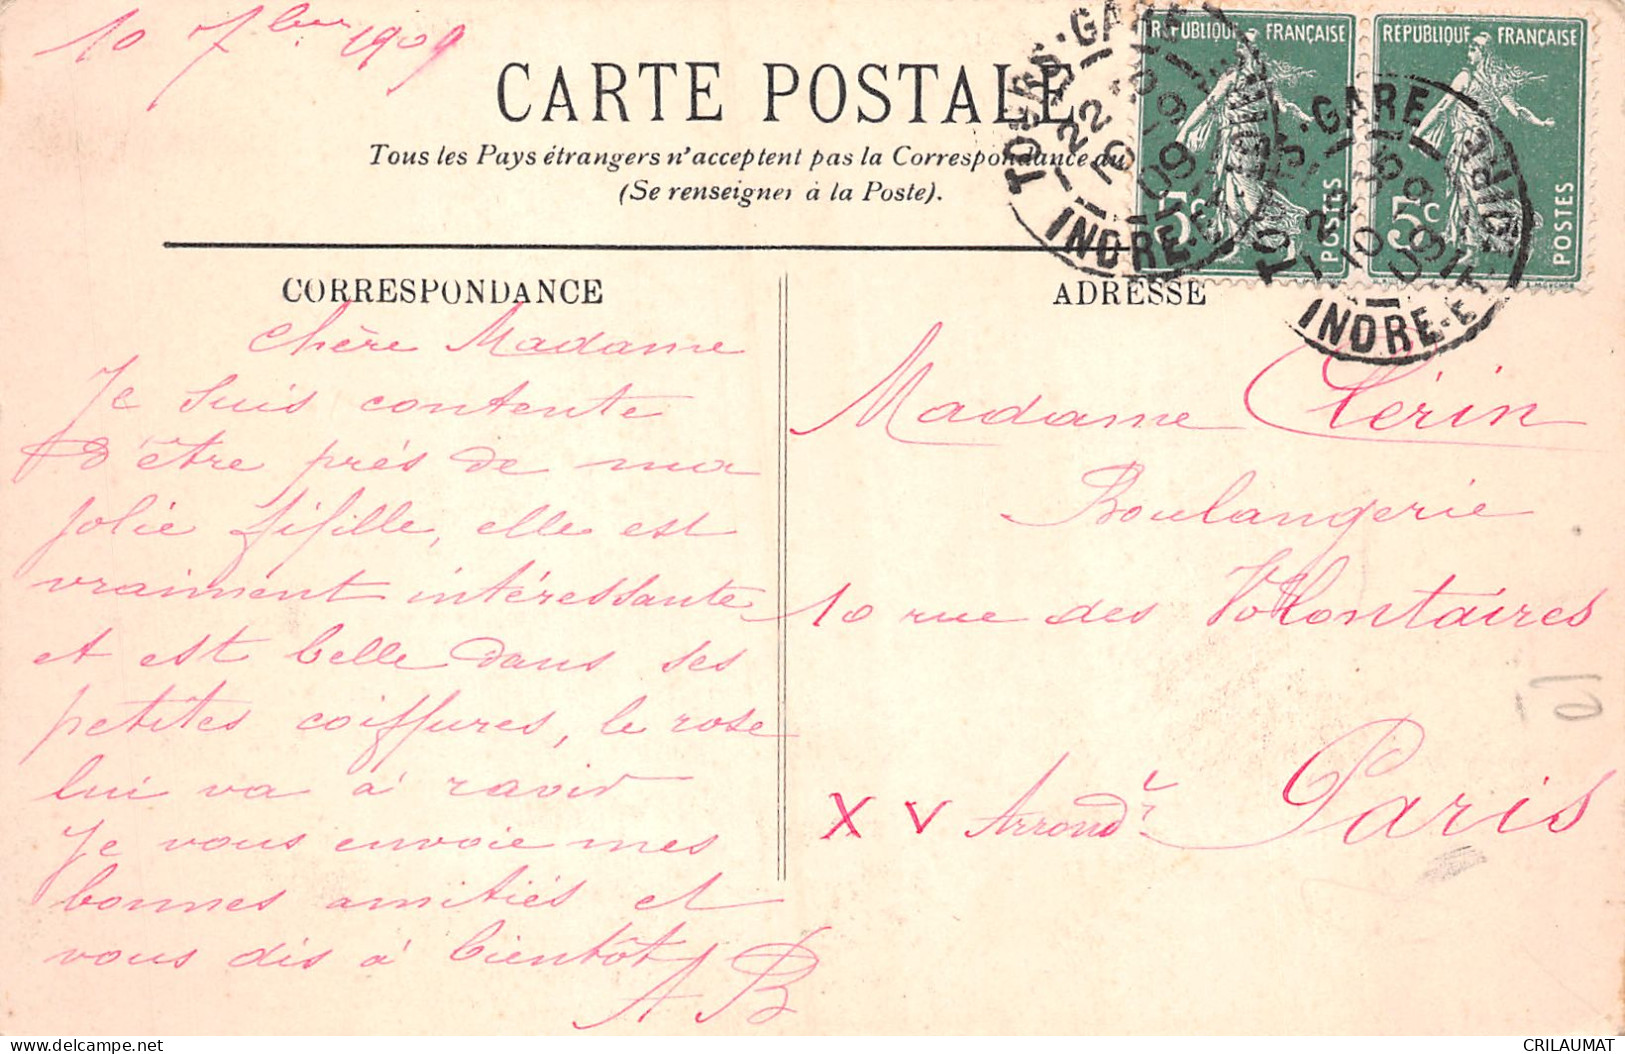 10 7bre 1909
CARTE POSTALE
Tous les Pays étrangers n'acceptent pas la Correspondance au
(Se renseigner à la Poste).
RÉPUBLIQUE FRANÇAISE
5c
POSTES
RÉPUBLIQUE FRANÇAISE
5c
POSTES
TOURS-GARE
22
10 - 9
09
INDRE-ET-LOIRE
TOURS-GARE
10 - 9
09
INDRE-ET-LOIRE
CORRESPONDANCE
Chère Madame
Je suis contente
d'être près de ma
jolie fifille, elle est
vraiment intéressante
et est belle dans ses
petites coiffures, le rose
lui va à ravir
Je vous envoie mes
bonnes amitiés et
vous dis à bientôt
AB
ADRESSE
Madame Clérin
Boulangerie
10 rue des Volontaires
XV Arrondr Paris
CRILAUMAT